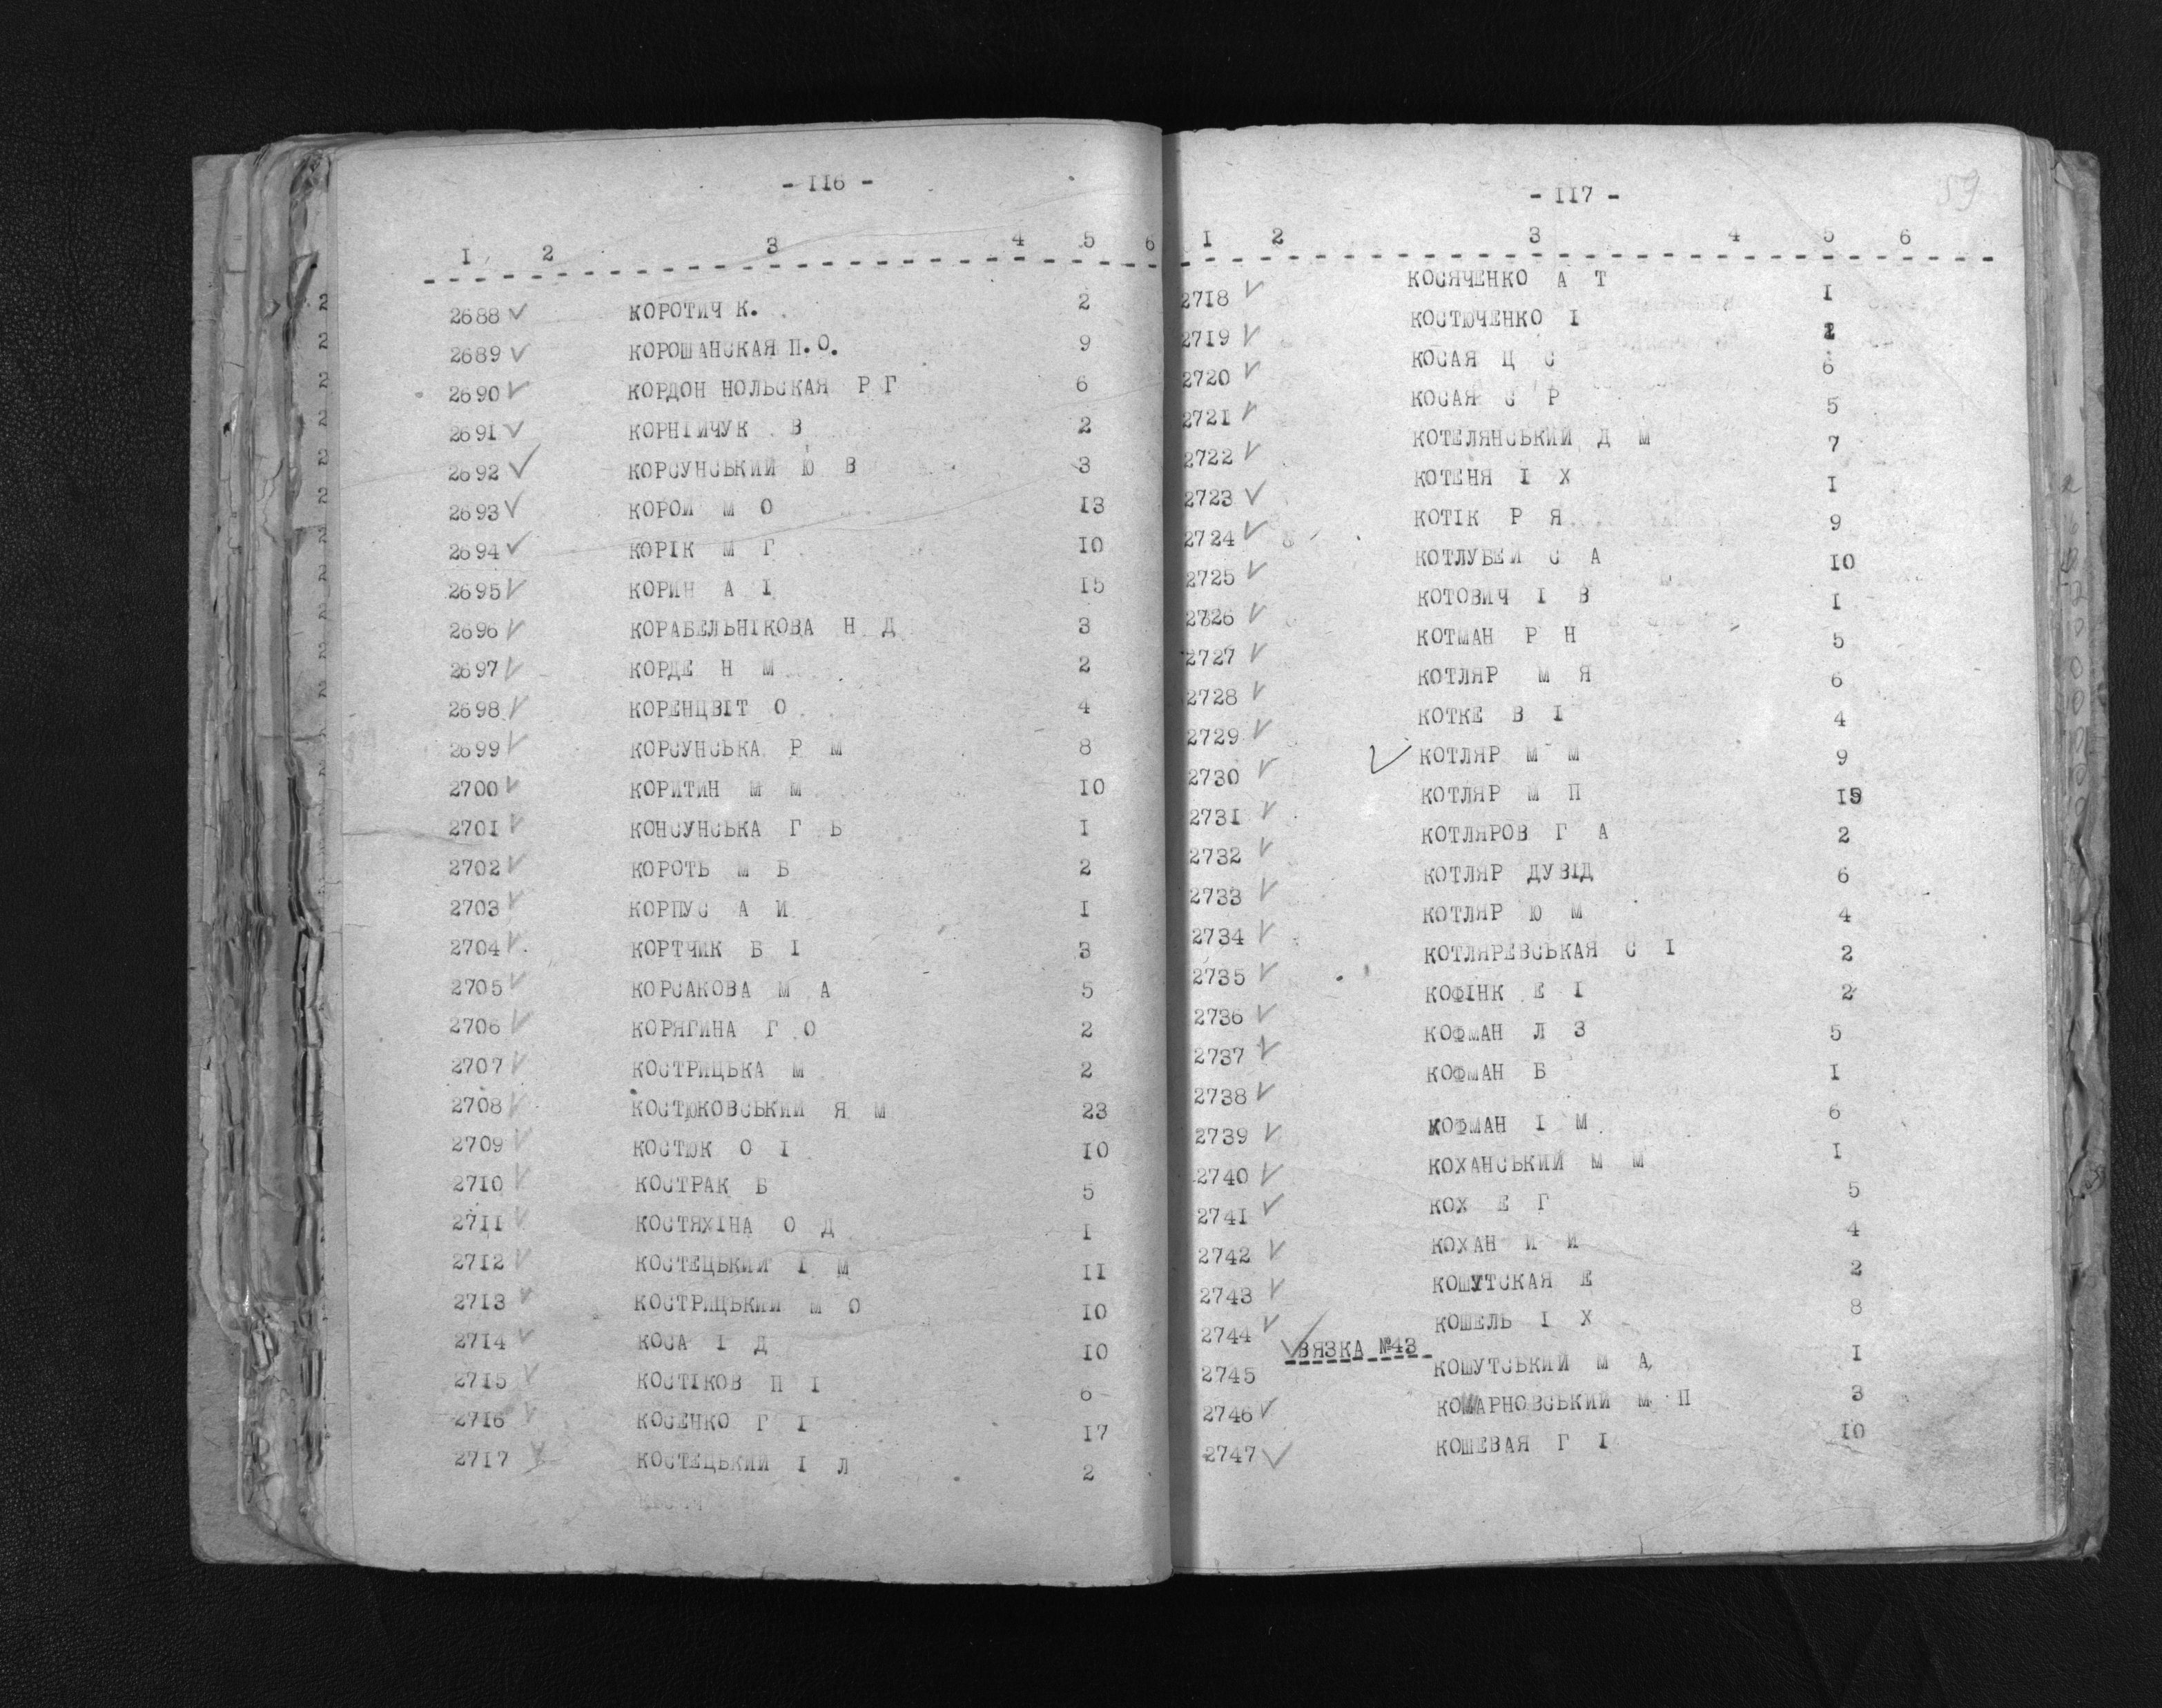 - 116 -
1 2 3 4 5 6
2688 КОРОТИЧ К. 2
2689 КОРОШАНСКАЯ П.О. 9
2690 КОРДОН НОЛЬСКАЯ Р Г 6
2691 КОРНІЙЧУК В 2
2692 КОРСУНСЬКИЙ Ю В 3
2693 КОРОЙ М О 13
2694 КОРІК М Г 10
2695 КОРИН А І 15
2696 КОРАБЕЛЬНІКОВА Н Д 3
2697 КОРДЕ Н М 2
2698 КОРЕНЦВІТ О 4
2699 КОРСУНСЬКА Р М 8
2700 КОРИТИН М М 10
2701 КОНСУНСЬКА Г Б 1
2702 КОРОТЬ М Б 2
2703 КОРПУС А И 1
2704 КОРТЧИК Б І 3
2705 КОРСАКОВА М А 5
2706 КОРЯГИНА Г О 2
2707 КОСТРИЦЬКА М 2
2708 КОСТЮКОВСЬКИЙ Я М 23
2709 КОСТЮК О І 10
2710 КОСТРАК Б 5
2711 КОСТЯХІНА О Д 1
2712 КОСТЕЦЬКИЙ І М 11
2713 КОСТРИЦЬКИЙ М О 10
2714 КОСА І Д 10
2715 КОСТІКОВ П І 6
2716 КОСЕНКО Г І 17
2717 КОСТЕЦЬКИЙ І Л 2
- 117 -
59
1 2 3 4 5 6
2718 КОСЯЧЕНКО А Т 1
2719 КОСТЮЧЕНКО І
2720 КОСАЯ Ц С 6
2721 КОСАЯ С Р 5
2722 КОТЕЛЯНСЬКИЙ Д М 7
2723 КОТЕНЯ І Х 1
2724 КОТІК Р Я 9
2725 КОТЛУБЕЙ С А 10
2726 КОТОВИЧ І В 1
2727 КОТМАН Р Н 5
2728 КОТЛЯР М Я 6
2729 КОТКЕ В І 4
2730 КОТЛЯР М М 9
2731 КОТЛЯР М П
2732 КОТЛЯРОВ Г А 2
2733 КОТЛЯР ДУВІД 6
2734 КОТЛЯР Ю М 4
2735 КОТЛЯРЕВСЬКАЯ С І 2
2736 КОФІНК Е І 2
2737 КОФМАН Л З 5
2738 КОФМАН Б 1
2739 КОФМАН І М 6
2740 КОХАНСЬКИЙ М М 1
2741 КОХ Е Г 5
2742 КОХАН И И 4
2743 КОШУТСКАЯ Е 2
2744 КОШЕЛЬ І Х 8
ВЯЗКА №43
2745 КОШУТСЬКИЙ М А 1
2746 КОШАРНОВСЬКИЙ М П 3
2747 КОШЕВАЯ Г І 10